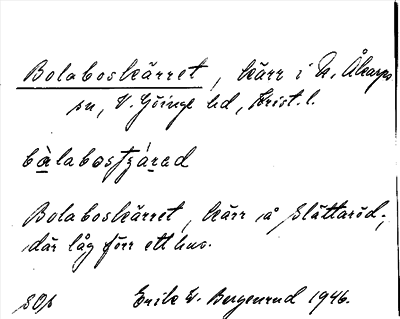 Bolaboskärret, kärr i N. Åkarps
sn, V. Göinge hd, Krist. l.
bòlabosfzárad
Bolaboskärret, kärr å Slättaröd;
där låg förr ett hus.
Erik W. Bergenrud 1946.